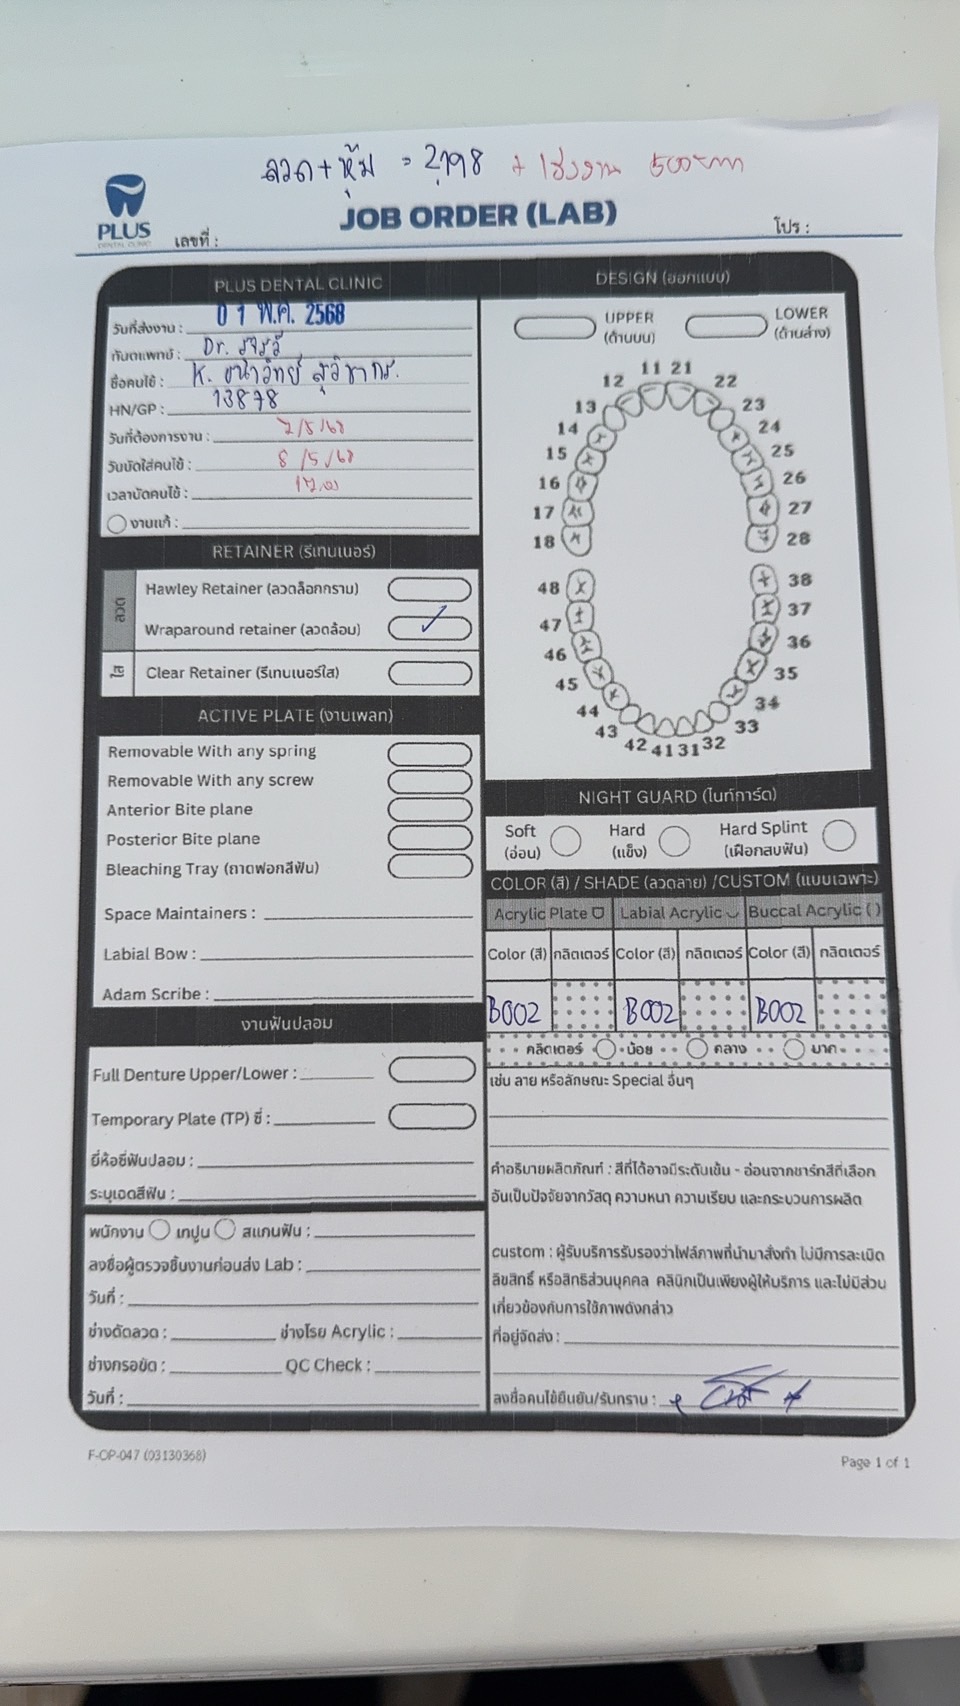 ลวด + หุ้ม = 2,798 + เร่งงาน 500บาท
PLUS
DENTAL CLINIC
JOB ORDER (LAB)
เลขที่ :
โปร :
PLUS DENTAL CLINIC
วันที่ส่งงาน : 01 พ.ค. 2568
ทันตแพทย์ : Dr.
ชื่อคนไข้ : K.
HN/GP : 13878
วันที่ต้องการงาน : 7/5/68
วันนัดใส่คนไข้ : 8/5/68
เวลานัดคนไข้ :
งานแก้ :
RETAINER (รีเทนเนอร์)
ลวด
Hawley Retainer (ลวดล็อกกราม)
Wraparound retainer (ลวดล้อม) ✓
ใส
Clear Retainer (รีเทนเนอร์ใส)
ACTIVE PLATE (งานเพลท)
Removable With any spring
Removable With any screw
Anterior Bite plane
Posterior Bite plane
Bleaching Tray (ถาดฟอกสีฟัน)
Space Maintainers :
Labial Bow :
Adam Scribe :
งานฟันปลอม
Full Denture Upper/Lower :
Temporary Plate (TP) ซี่ :
ยี่ห้อซี่ฟันปลอม :
ระบุเฉดสีฟัน :
พนักงาน เทปูน สแกนฟัน :
ลงชื่อผู้ตรวจชิ้นงานก่อนส่ง Lab :
วันที่ :
ช่างดัดลวด : ช่างโรย Acrylic :
ช่างกรอขัด : QC Check :
วันที่ :
DESIGN (ออกแบบ)
UPPER
(ด้านบน)
LOWER
(ด้านล่าง)
11 21
12 22
13 23
14 24
15 25
16 26
17 27
18 28
48 38
47 37
46 36
45 35
44 34
43 33
42 41 31 32
NIGHT GUARD (ไนท์การ์ด)
Soft
(อ่อน)
Hard
(แข็ง)
Hard Splint
(เฝือกสบฟัน)
COLOR (สี) / SHADE (ลวดลาย) /CUSTOM (แบบเฉพาะ)
Acrylic Plate Labial Acrylic Buccal Acrylic ( )
Color (สี) กลิตเตอร์ Color (สี) กลิตเตอร์ Color (สี) กลิตเตอร์
B002 B002 B002
กลิตเตอร์ น้อย กลาง มาก
เช่น ลาย หรือลักษณะ Special อื่นๆ
คำอธิบายผลิตภัณฑ์ : สีที่ได้อาจมีระดับเข้ม - อ่อนจากชาร์กสีที่เลือก
อันเป็นปัจจัยจากวัสดุ ความหนา ความเรียบ และกระบวนการผลิต
custom : ผู้รับบริการรับรองว่าไฟล์ภาพที่นำมาสั่งทำ ไม่มีการละเมิด
ลิขสิทธิ์ หรือสิทธิส่วนบุคคล คลินิกเป็นเพียงผู้ให้บริการ และไม่มีส่วน
เกี่ยวข้องกับการใช้ภาพดังกล่าว
ที่อยู่จัดส่ง :
ลงชื่อคนไข้ยืนยัน/รับทราบ :
F-OP-047 (03130368)
Page 1 of 1